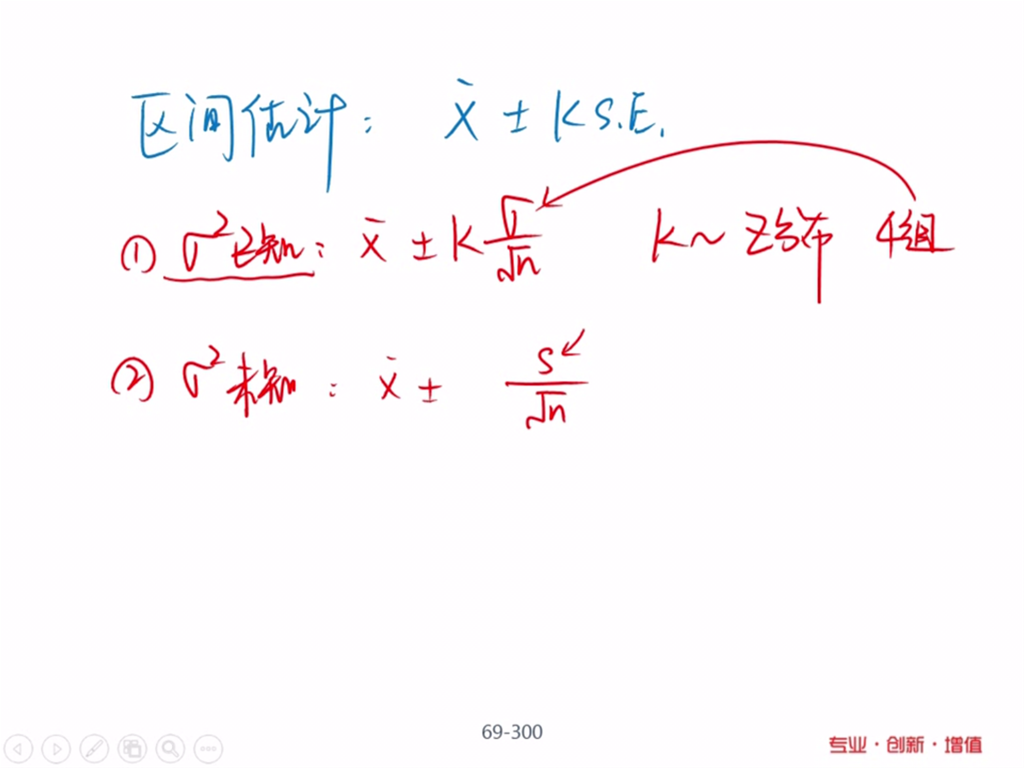 区间估计： x̄ ± K S.E.
① σ²已知： x̄ ± K σ/√n K～Z分布 4组
② σ²未知： x̄ ± s/√n
69-300
专业·创新·增值